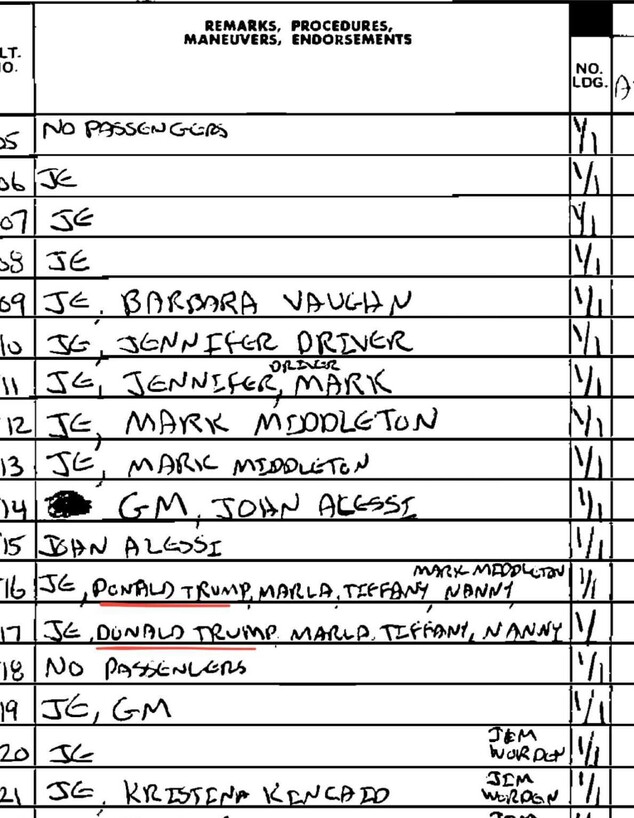 REMARKS, PROCEDURES,
MANEUVERS, ENDORSEMENTS
LT.
O.
NO.
LDG.
05 NO PASSENGERS 1/1
06 JE 1/1
07 JE 1/1
08 JE 1/1
09 JE, BARBARA VAUGHN 1/1
10 JE, JENNIFER DRIVER 1/1
DRIVER
11 JE, JENNIFER, MARK 1/1
12 JE, MARK MIDDLETON 1/1
13 JE, MARK MIDDLETON 1/1
14 GM, JOHN ALESSI 1/1
15 JOHN ALESSI 1/1
MARK MIDDLETON
16 JE, DONALD TRUMP, MARLA, TIFFANY, NANNY 1/1
17 JE, DONALD TRUMP, MARLA, TIFFANY, NANNY 1/
18 NO PASSENGERS 1/1
19 JE, GM 1/1
JIM
20 JE WORDEN 1/1
JIM
21 JE, KRISTINA KINCAID WORDEN 1/1